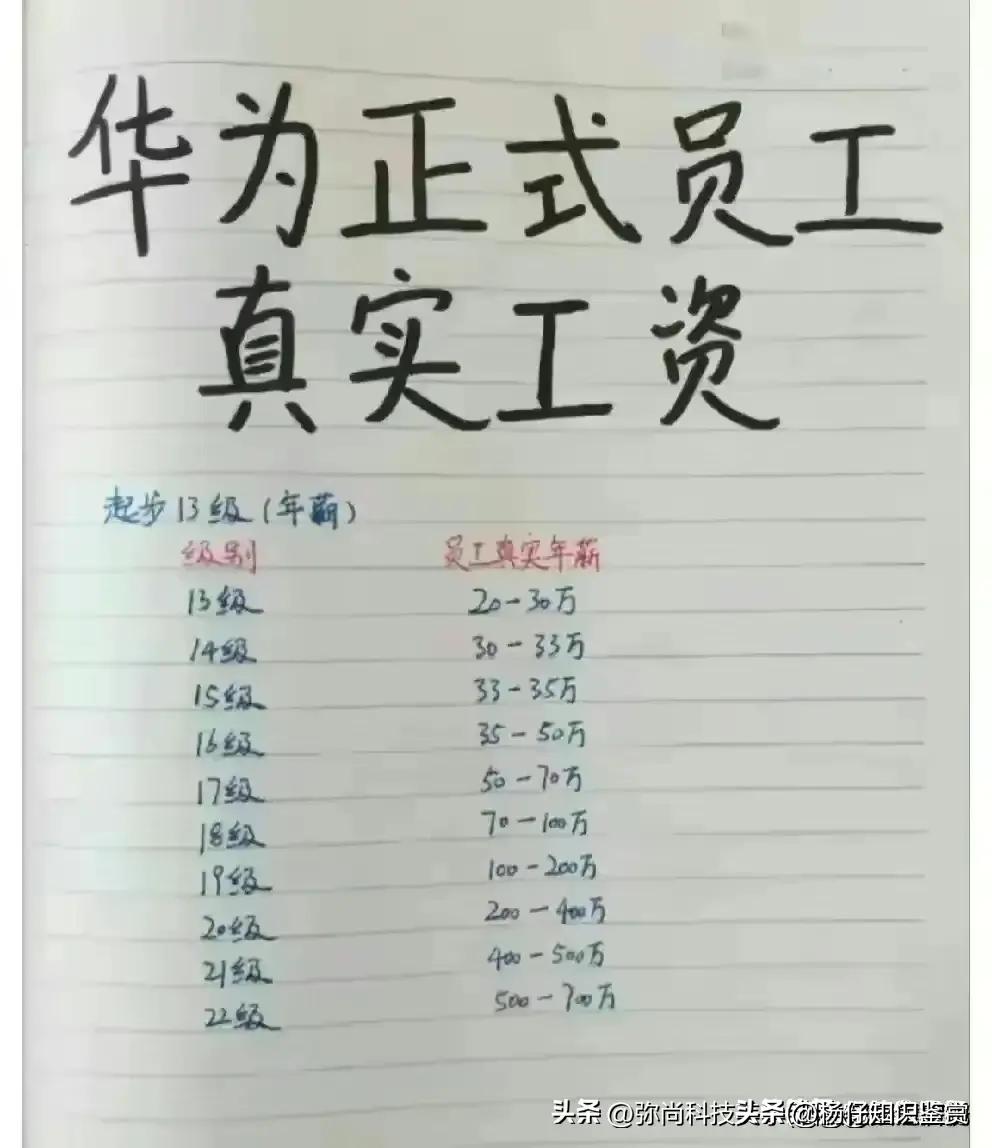 华为正式员工
真实工资
起步13级(年薪)
级别 员工真实年薪
13级 20-30万
14级 30-33万
15级 33-35万
16级 35-50万
17级 50-70万
18级 70-100万
19级 100-200万
20级 200-400万
21级 400-500万
22级 500-700万
头条 @弥尚科技 头条 @杨仔知识鉴赏